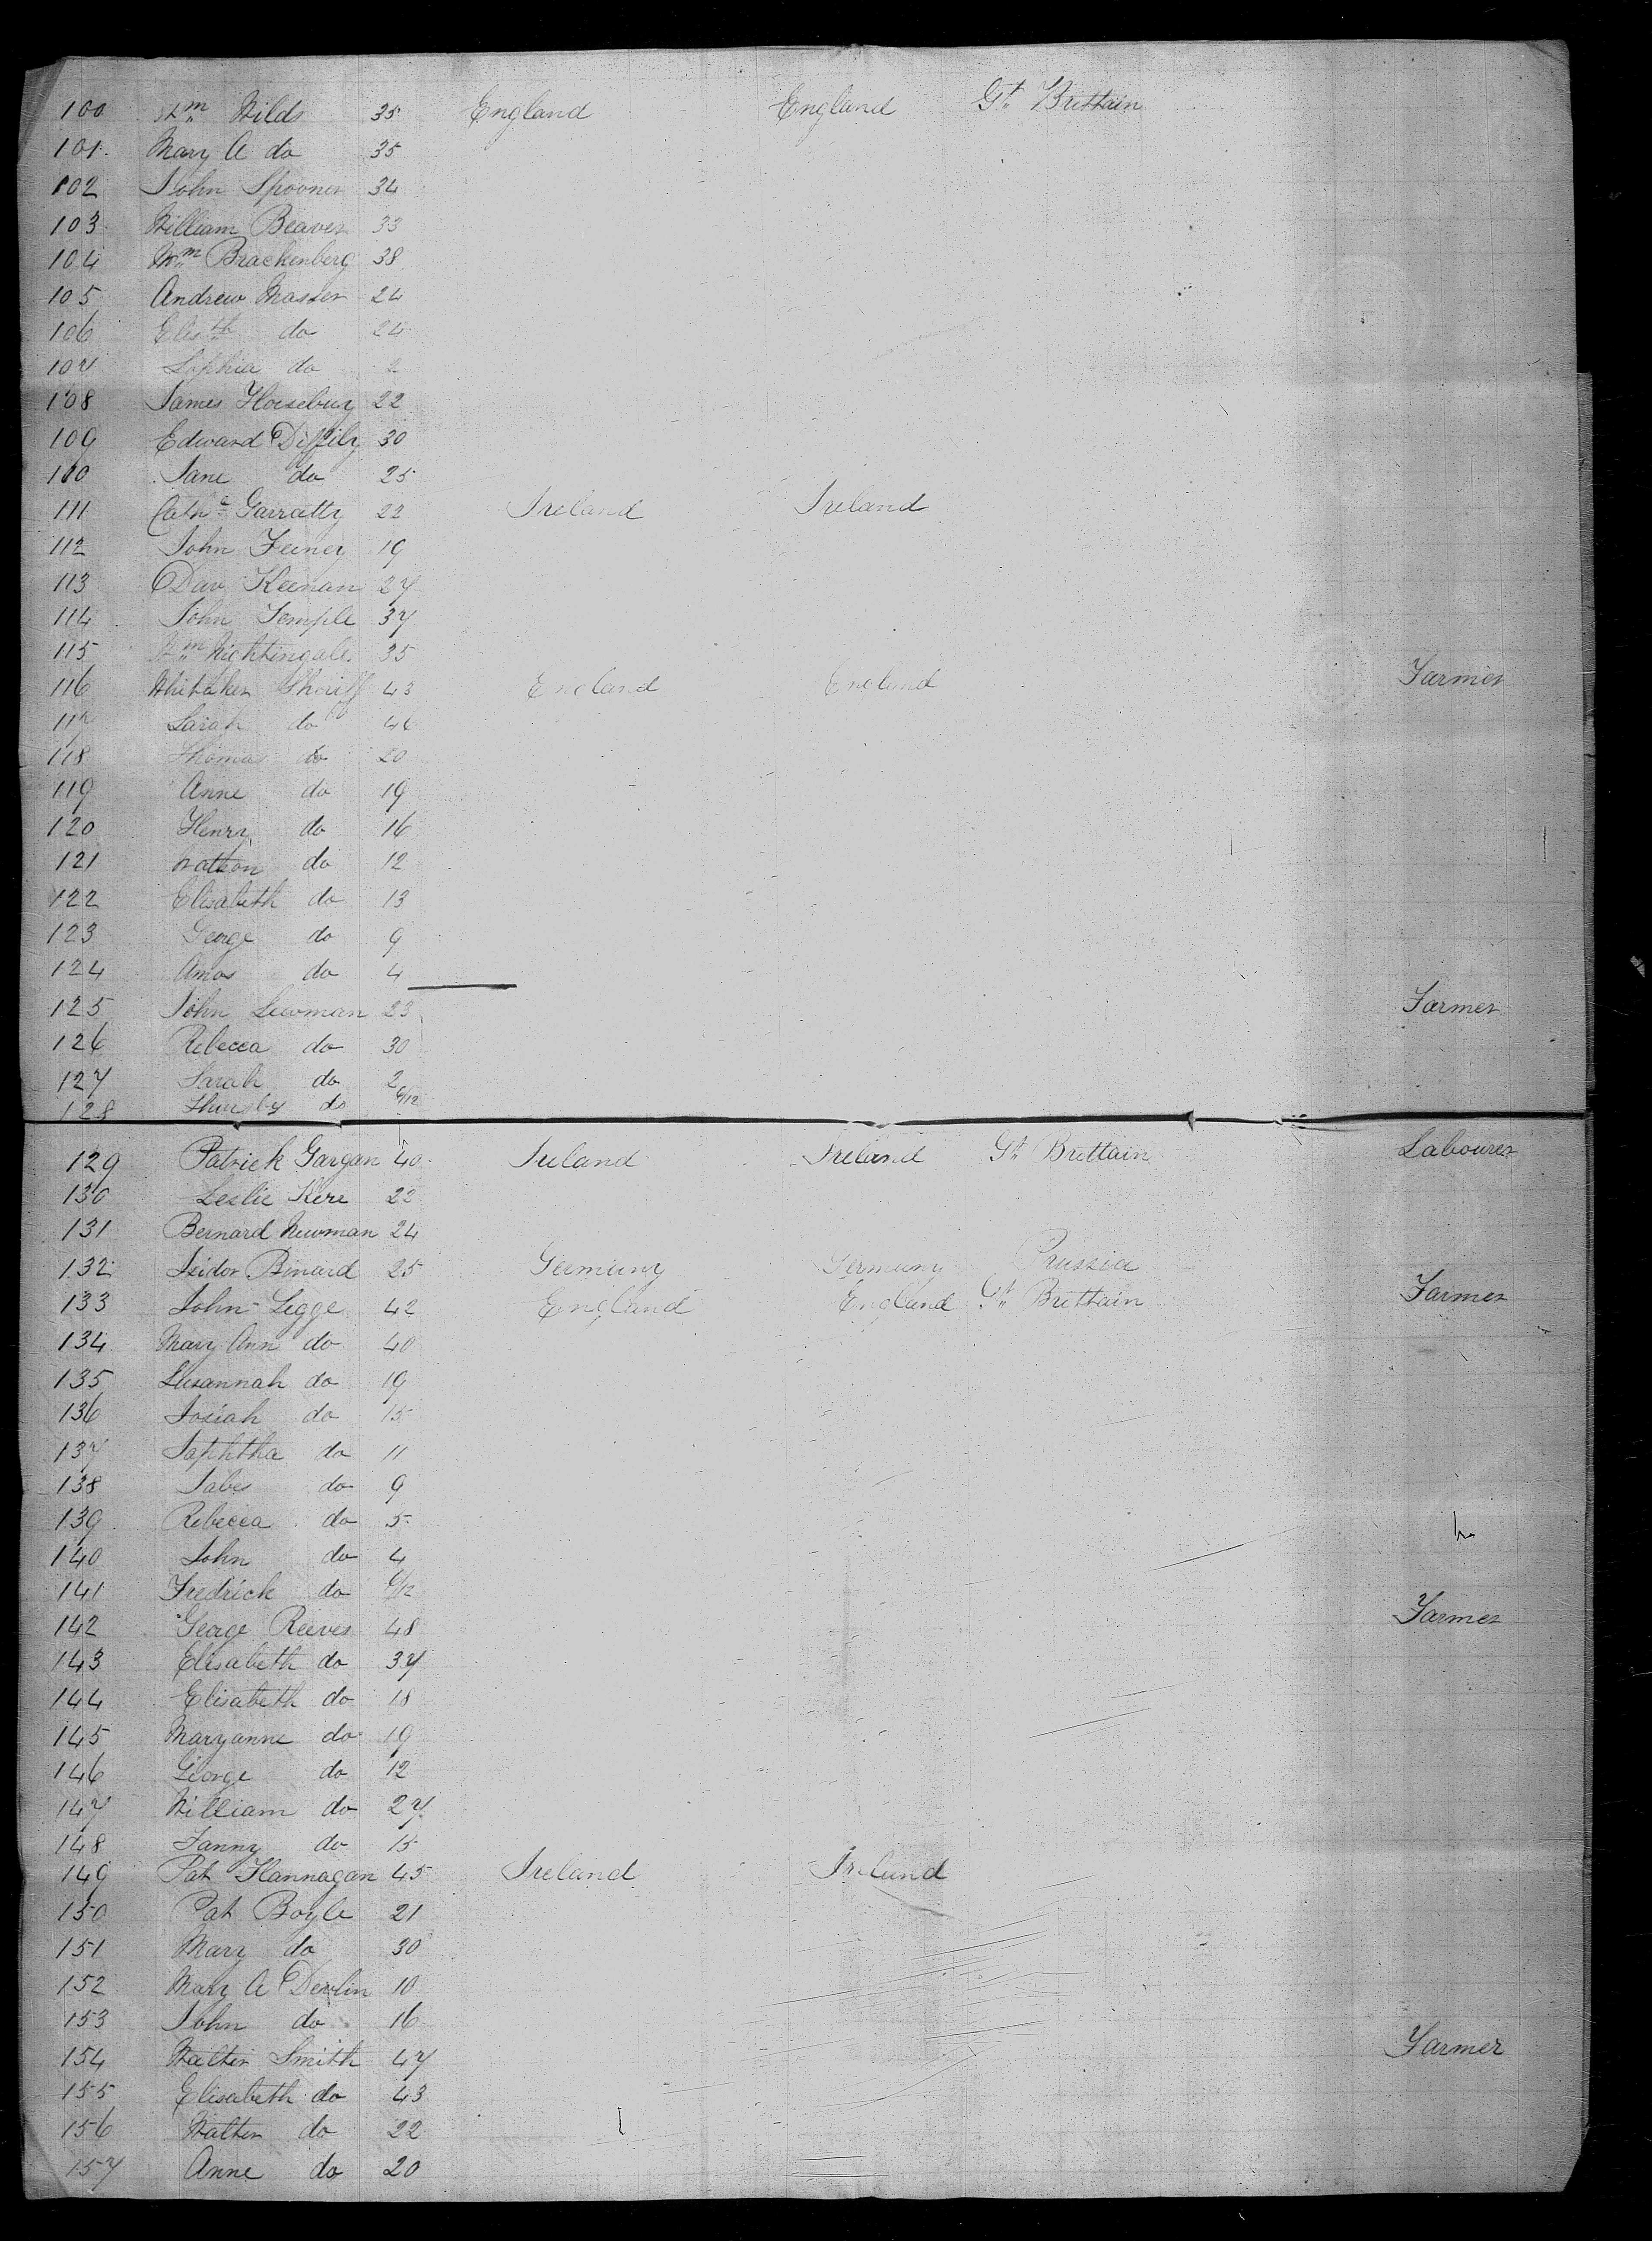 100 Wm Wilds 35 England England Gt Brittain
101 Mary A do 35
102 John Spooner 34
103 William Beaver 33
104 Wm Brackenberg 38
105 Andrew Masser 24
106 Elisth do 24
107 Sophia do 2
108 James Horsebury 22
109 Edward Diffily 30
110 Jane do 25
111 Cathe Garratty 22 Ireland Ireland
112 John Feeney 19
113 Dav Keenan 27
114 John Temple 37
115 Wm Nightingale 35
116 Whitaker 43 England England Farmer
117 Sarah do 46
118 Thomas do 20
119 Anne do 19
120 Henry do 16
121 Watson do 12
122 Elisabeth do 13
123 George do 9
124 Amos do 4
125 John Lewman 23 Farmer
126 Rebecca do 30
127 Sarah do 2
128 Thursby do 6/12
129 Patrick Gargan 40 Ireland Ireland Gt Brittain Labourer
130 Leslie Kere 22
131 Bernard Newman 24
132 Isidor Binard 25 Germany Germany Prussia
133 John Legge 42 England England Gt Brittain Farmer
134 Mary Ann do 40
135 Susannah do 19
136 Josiah do 15
137 Japhtha do 11
138 Jabes do 9
139 Rebecca do 5
140 John do 4
141 Fredrick do 6/12
142 George Reeves 48 Farmer
143 Elisabeth do 37
144 Elisabeth do 18
145 Maryanne do 19
146 George do 12
147 William do 27
148 Fanny do 15
149 Pat Flannagan 45 Ireland Ireland
150 Pat Boyle 21
151 Mary do 30
152 Mary A Devlin 10
153 John do 16
154 Walter Smith 47 Farmer
155 Elisabeth do 43
156 Walter do 22
157 Anne do 20